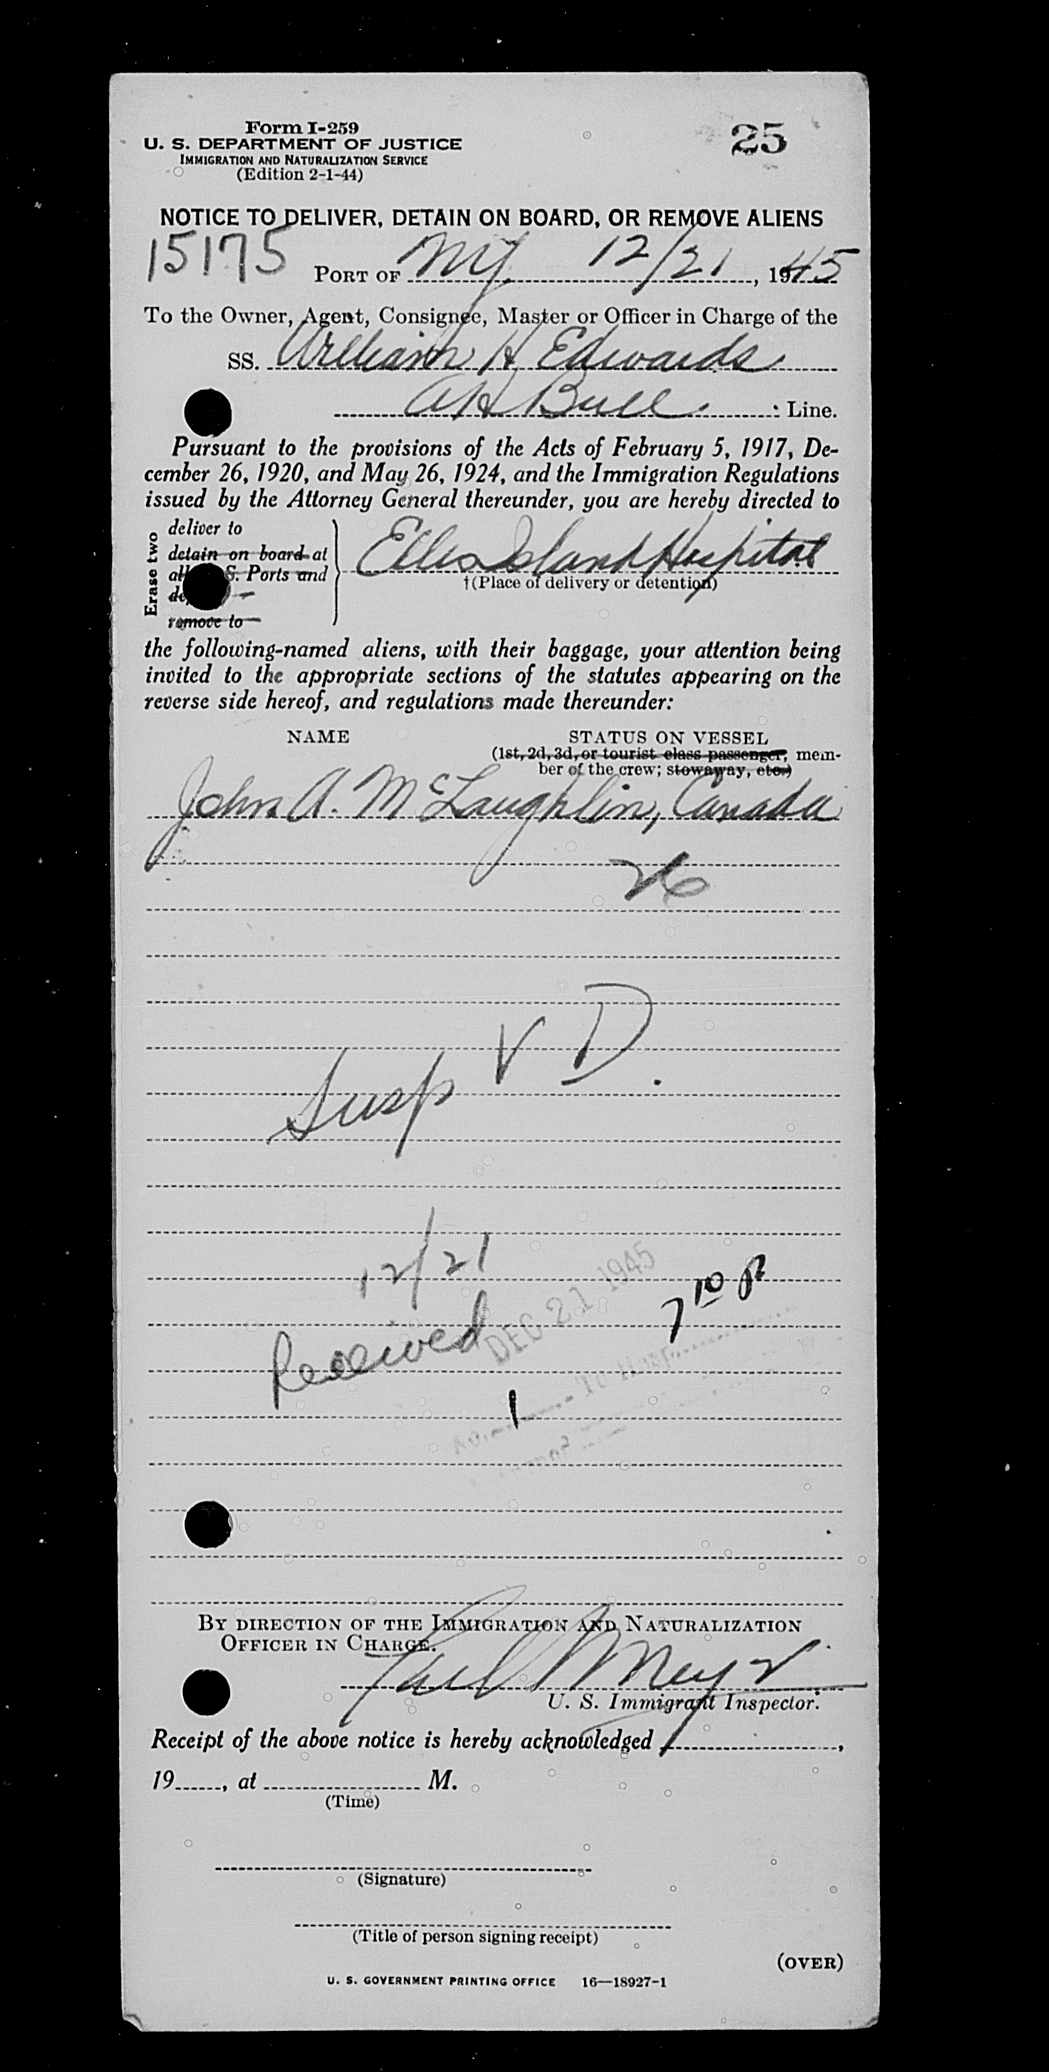 Form I-259
25
U. S. DEPARTMENT OF JUSTICE
IMMIGRATION AND NATURALIZATION SERVICE
(Edition 2-1-44)
NOTICE TO DELIVER, DETAIN ON BOARD, OR REMOVE ALIENS
15175 PORT OF NY 12/21, 1945
To the Owner, Agent, Consignee, Master or Officer in Charge of the
SS. William H Edwards
AH Bull : Line.
Pursuant to the provisions of the Acts of February 5, 1917, De-
cember 26, 1920, and May 26, 1924, and the Immigration Regulations
issued by the Attorney General thereunder, you are hereby directed to
Erase two
deliver to
detain on board at
S. Ports and
remove to
Ellis Island Hospital
†(Place of delivery or detention)
the following-named aliens, with their baggage, your attention being
invited to the appropriate sections of the statutes appearing on the
reverse side hereof, and regulations made thereunder:
NAME STATUS ON VESSEL
(1st, 2d, 3d, or tourist class passenger; mem-
ber of the crew; stowaway, etc.)
John A. McLaughlin, Canada
26
Susp V D.
12/21
DEC 21 1945
7 10 P
Received
No. 1 To Hosp.
BY DIRECTION OF THE IMMIGRATION AND NATURALIZATION
OFFICER IN CHARGE.
U. S. Immigrant Inspector.
Receipt of the above notice is hereby acknowledged ,
19 , at M.
(Time)
(Signature)
(Title of person signing receipt)
(OVER)
U. S. GOVERNMENT PRINTING OFFICE 16—18927-1